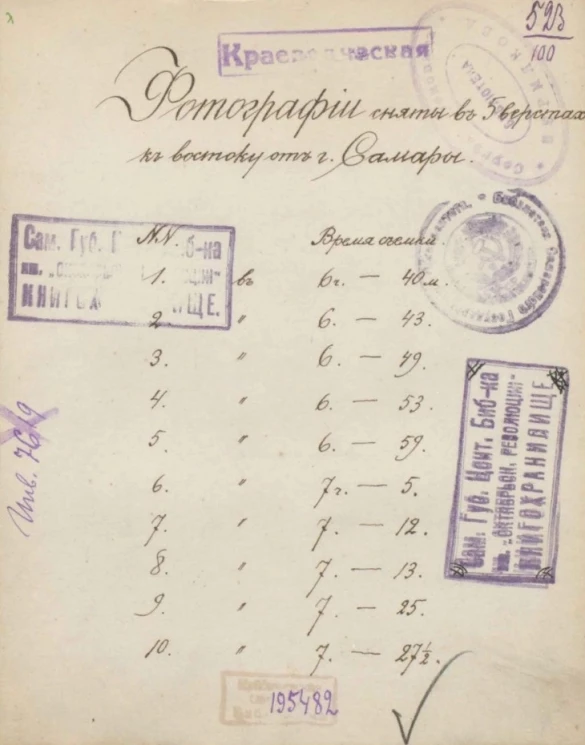 523
100
Краеведческая
Фотографіи сняты въ 5 верстахъ
къ востоку отъ г. Самары.
N.N. Время съемки.
1. въ 6 ч. — 40 м.
2. " 6. — 43.
3. " 6. — 49.
4. " 6. — 53.
5. " 6. — 59.
6. " 7 ч. — 5.
7. " 7. — 12.
8. " 7. — 13.
9. " 7. — 25.
10. " 7. — 27½.
Сам. Губ. Биб-ка
КНИГОХРАНИЛИЩЕ.
Сам. Губ. Цент. Биб-ка
им. „ОКТЯБРЬСК. РЕВОЛЮЦИИ“
КНИГОХРАНИЛИЩЕ
Инв. 7619
195482